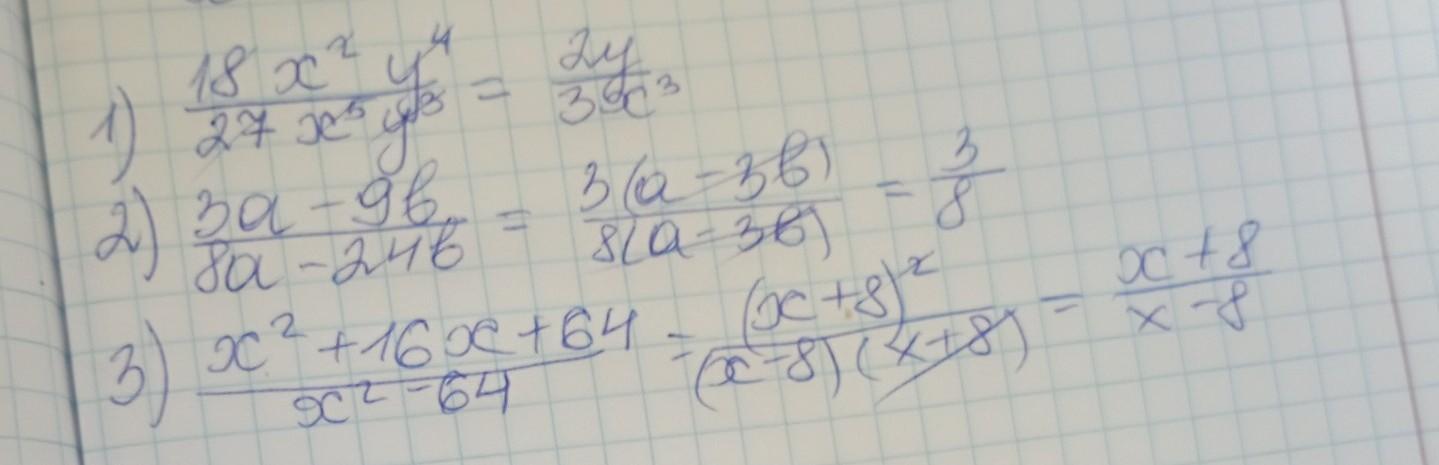 1) 18x²y⁴/27x⁵y³ = 2y/3x³
2) 3a-9b/8a-24b = 3(a-3b)/8(a-3b) = 3/8
3) x²+16x+64/x²-64 = (x+8)²/(x-8)(x+8) = x+8/x-8